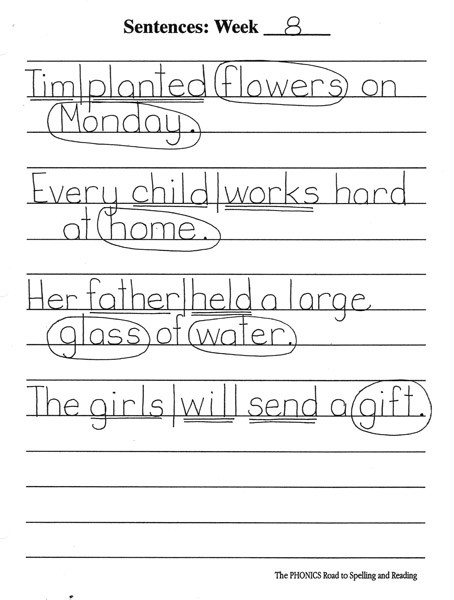 Sentences: Week 8
Tim planted flowers on
Monday.
Every child works hard
at home.
Her father held a large
glass of water.
The girls will send a gift.
The PHONICS Road to Spelling and Reading